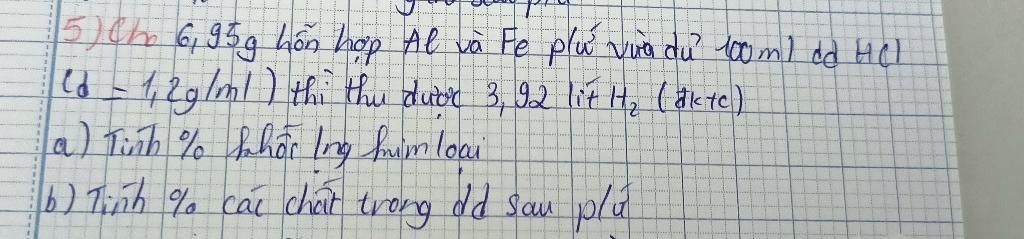 5) Cho 6,95g hỗn hợp Al và Fe p/ứ vừa đủ 100ml dd HCl
(d = 1,2g/ml) thì thu được 3,92 lít H₂ (đktc)
a) Tính % khối lng kim loại
b) Tính % các chất trong dd sau p/ứ